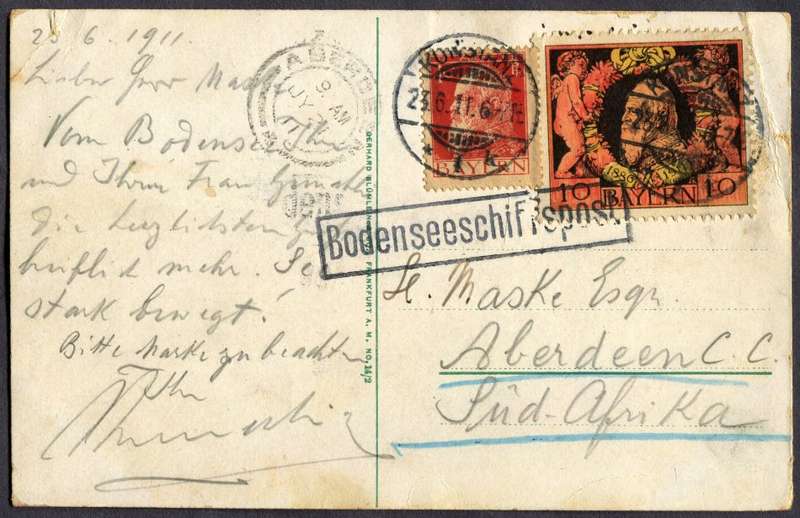 23 6. 1911.
Lieber Herr Maske
Vom Bodensee Ihnen
und Ihrer Frau Gemahlin
die herzlichsten
brieflich mehr. See
stark bewegt!
Bitte Marke zu beachten
Ihr
ABERDEEN
9 AM
JY
11
KONSTANZ
23.6.11.6-7
* 1 k. *
BAYERN
KONSTANZ
1886
10 BAYERN 10
Bodenseeschiffspost
GERHARD BLÜMLEIN FRANKFURT A. M. NO. 14/2
H. Maske Esqr.
Aberdeen C. C.
Süd-Afrika